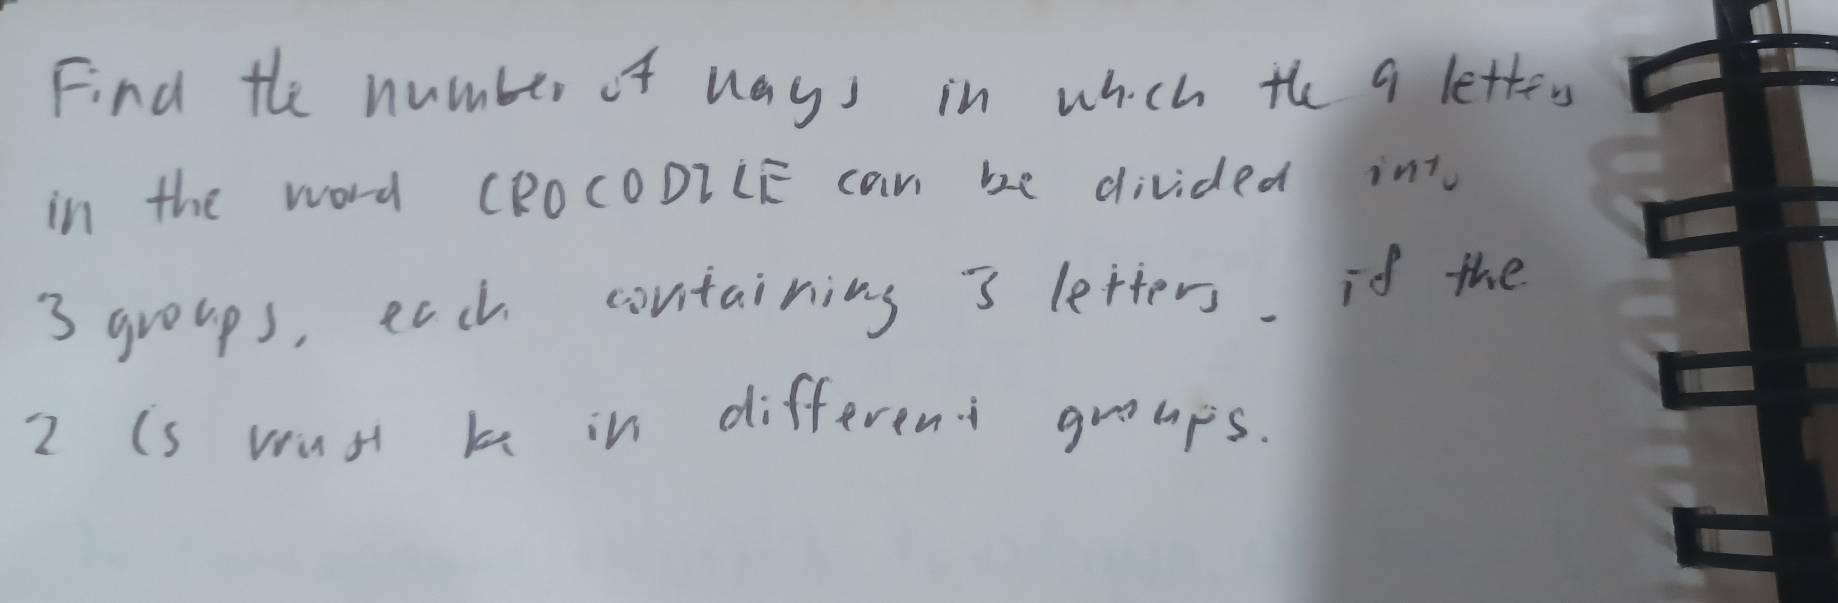 Find the number of ways in which the 9 letters
in the word CROCODILE can be divided into
3 groups, each containing 3 letters. if the
2 Cs must be in different groups.